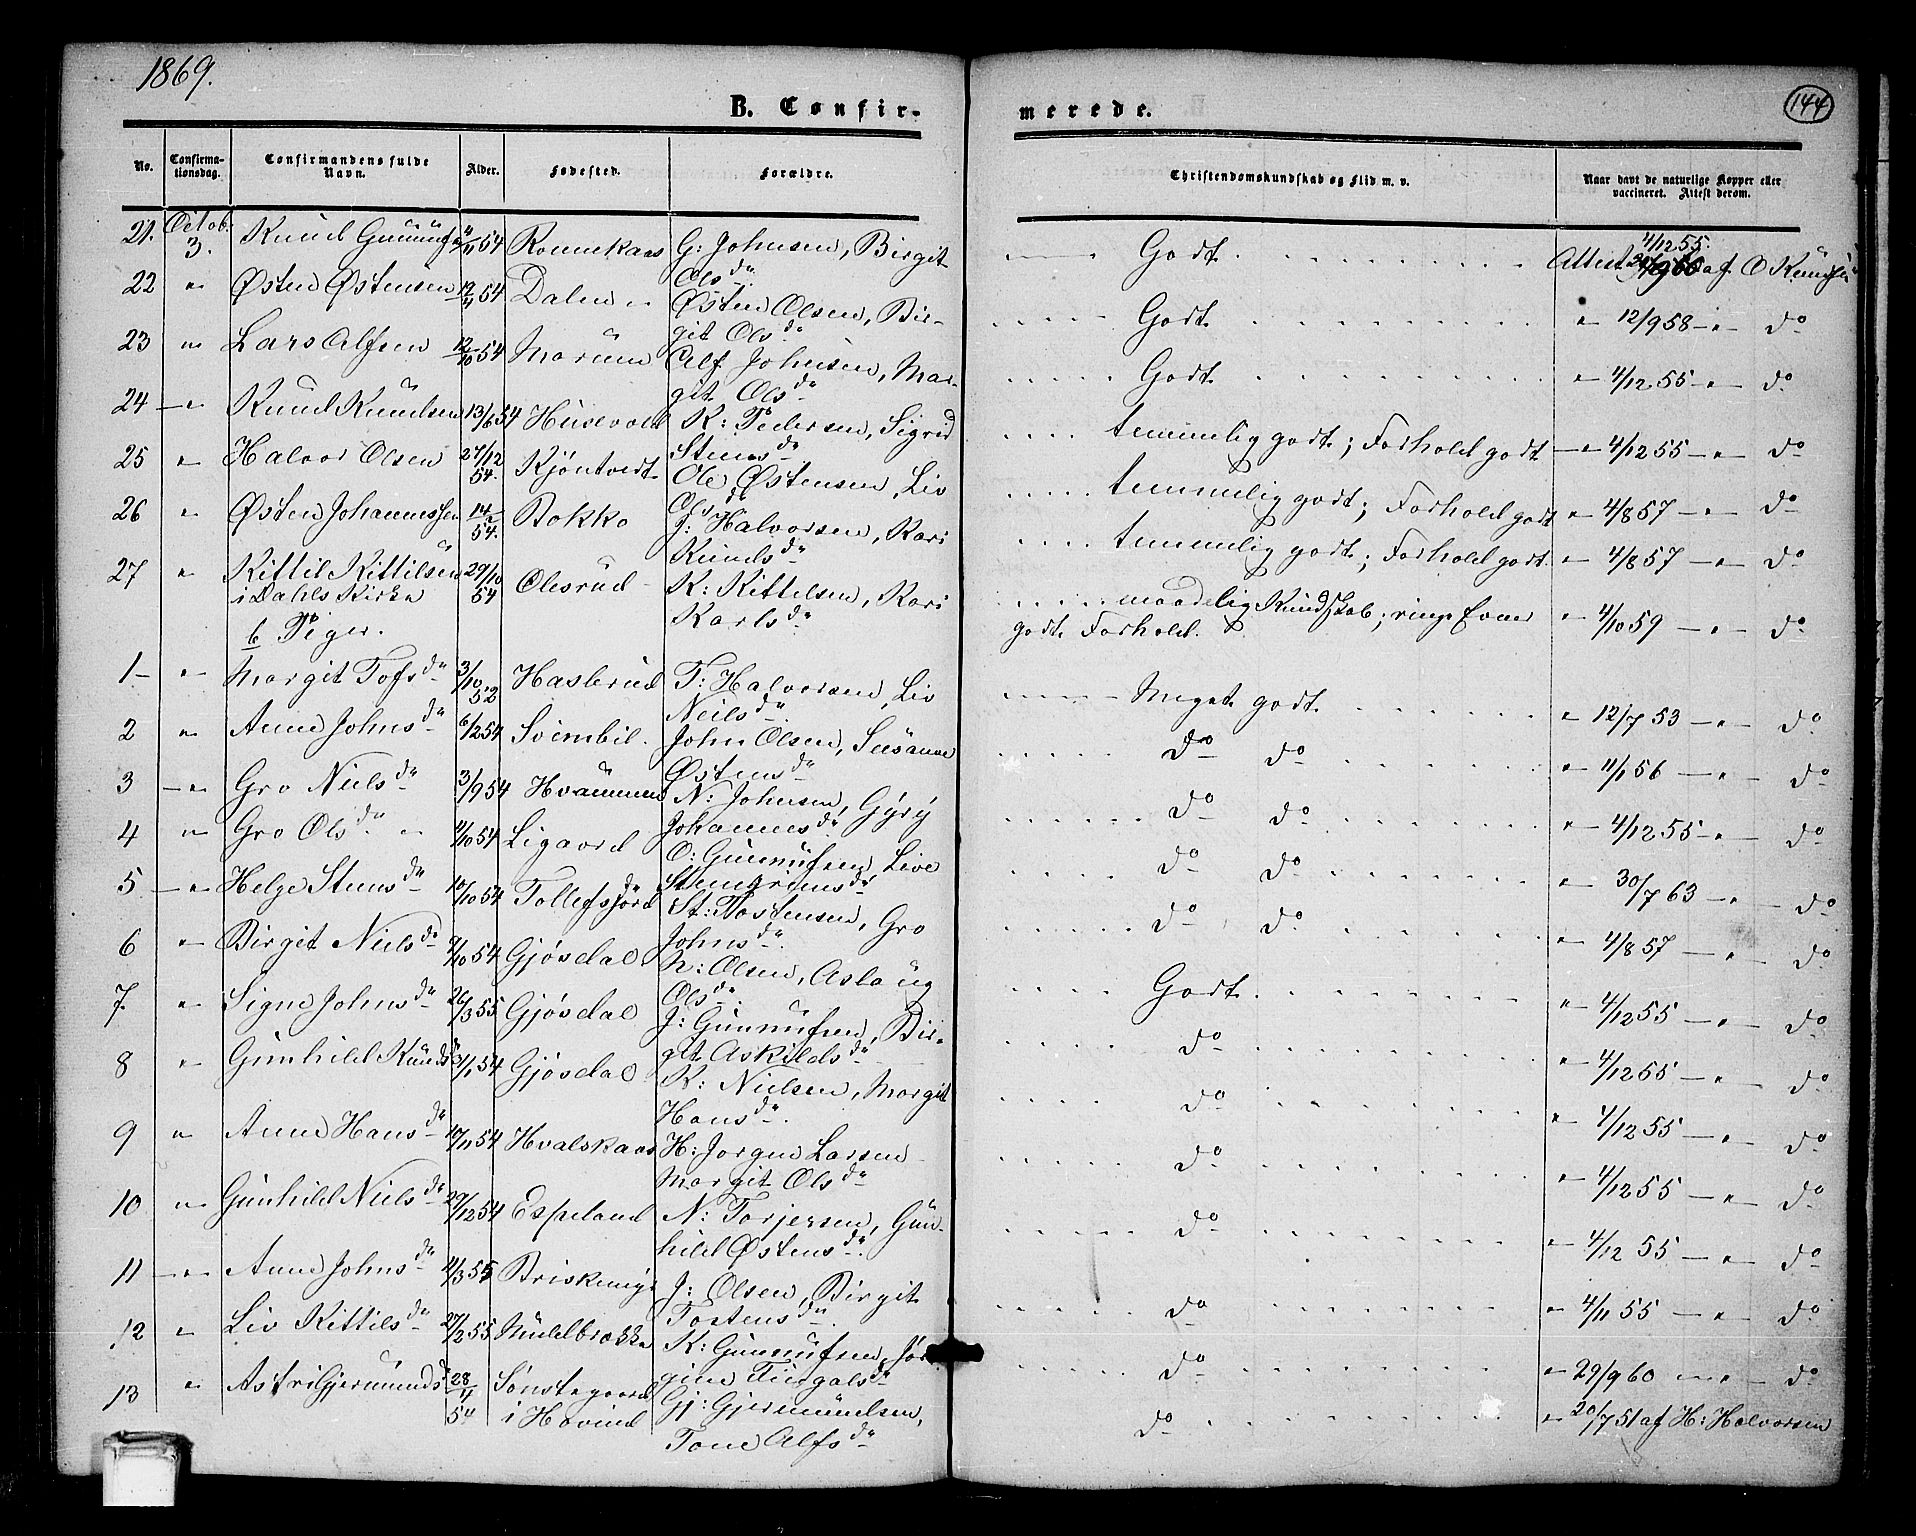 1869.
144
B. Confir-
merede.
No. Confirma-tionsdag. Confirmandens fulde Navn. Alder. Fødested. Forældre. Christendomskundskab og Flid m. v. Naar havt de naturlige Kopper eller vaccineret. Attest derom.
21. Octob. 3. Knud Gunnufs 54 Rønnekaas G: Johnsen, Birgit Olsdr. Godt. Attest 4/12 55. af O Knudsen
22 " Østen Østensen 12/11 54 Dalen Østen Olsen, Birgit Olsdr. Godt " 12/9 58 - " - do
23 " Lars Alfsen 12/10 54 Marum Alf Johnsen, Margit Olsdr Godt " 4/12 55 - " - do
24 " Knud Knudsen 13/6 54 Husevold K: Pedersen, Sigrid Stensdr temmelig godt; Forhold godt " 4/12 55 - " - do
25 " Halvor Olsen 27/12 54. Kjøntvedt Ole Østensen, Liv Olsdr temmelig godt; Forhold godt " 4/8 57 - " - do
26 " Østen Johannessen 14/2 54. Bokko J: Halvorsen, Kari Knudsdr temmelig godt; Forhold godt. " 4/8 57 - " - do
27 " Kittil Kittilsen i Dahls Kirke 29/10 54 Olesrud K: Kittelsen, Kari Karlsdr maadelig Kundskab; ringe Evner godt Forhold. " 4/10 59 - " - do
b Piger.
1 " Margit Tofsdr 3/10 52 Hasberud T: Halvorsen, Liv Neilsdr. Meget godt. " 12/7 53 - " - do
2 " Anne Johnsdr 6/2 54 Svimbil. John Olsen, Susanne Østensdr do do " 11/1 56 - " - do
3 " Gro Nielsdr 3/9 54 Hvammen N: Johnsen, Gyrÿ Johannesdr do do " 4/12 55 - " - do
4 " Gro Olsdr 4/10 54 Ligaard O: Gunnufsen, Live Stengrimsdr do do " 30/7 63 - " - do
5 " Helge Stensdr 10/10 54 Tollefsjord St: Tostensen, Gro Johnsdr. do do " 4/8 57 - " - do
6 " Birgit Nielsdr 9/10 54 Gjøsdal N: Olsen, Aslaug Olsdr. Godt " 4/12 55 - " - do
7. " Signe Johnsdr 26/3 55 Gjøsdal J: Gunnufsen, Birgit Askildsdr do " 4/12 55 - " - do
8 " Gunhild Knudsdr 3/1 54 Gjøsdal K: Nielsen, Margit Hansdr. do " 4/12 55 - " - do
9 " Anne Hansdr 17/11 54 Hvalskaas H: Jørgen Larsen Margit Olsdr do " 4/12 55 - " - do
10 " Gunhild Nielsdr 29/12 54 Espeland N: Torjersen, Gunhild Østensdr. do " 4/12 55 - " - do
11 " Anne Johnsdr 4/3 55 Briskemyr J: Olsen, Birgit Tostensdr. do " 4/11 55 - " - do
12 " Liv Kittilsdr 27/2 55 Midlbrokke K: Gunnufsen, Jørgine Tingalsdr do " 29/9 60 - " - do
13 " Astri Gjermundsdr 28/4 54 Sønstegaard i Hovind Gj: Gjermundsen, Tone Alfsdr do " 20/7 51 af H: Halvorsen